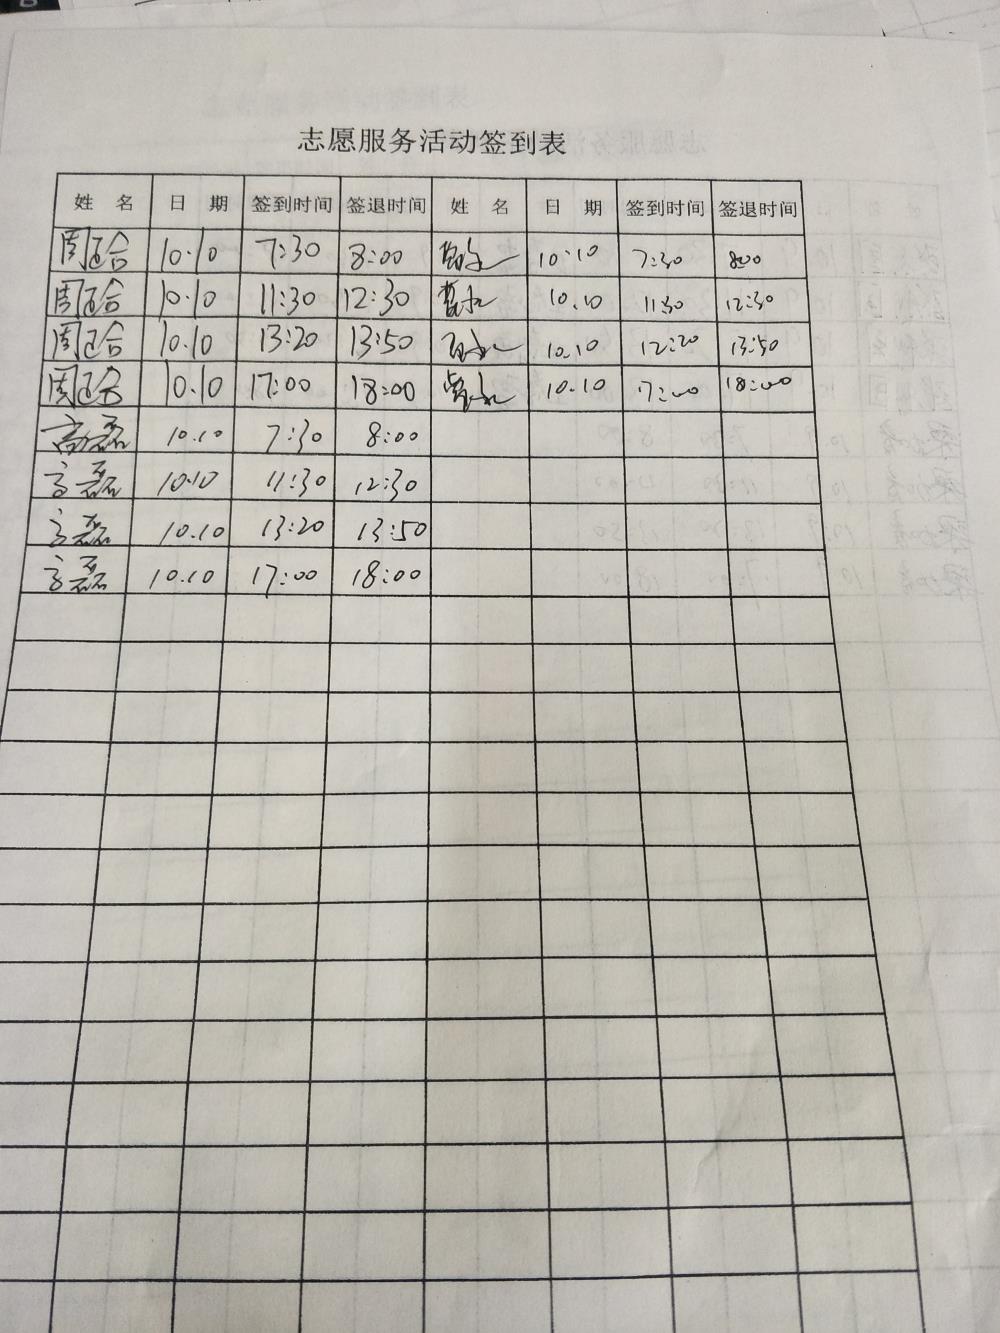 志愿服务活动签到表
姓 名 日 期 签到时间 签退时间 姓 名 日 期 签到时间 签退时间
周廷合 10.10 7:30 8:00 10.10 7:30 8:00
周廷合 10.10 11:30 12:30 10.10 11:30 12:30
周廷合 10.10 13:20 13:50 10.10 12:20 13:50
周廷合 10.10 17:00 18:00 10.10 17:00 18:00
高磊 10.10 7:30 8:00
高磊 10.10 11:30 12:30
高磊 10.10 13:20 13:50
高磊 10.10 17:00 18:00